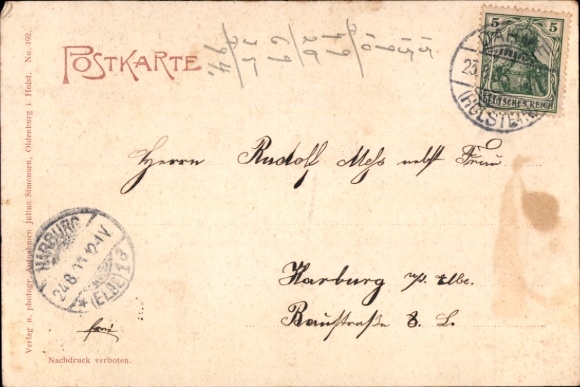 POSTKARTE
5 5
DEUTSCHES REICH
(HOLSTEIN)
Herrn Rudolf Mess nebst Frau
HARBURG
24.8. 12-1V
* (ELBE) 1 d
Harburg a/d. Elbe.
Baustraße 8. L.
Nachdruck verboten.
Verlag u. photogr. Aufnahmen Julius Simonsen, Oldenburg i. Holst. No. 192.